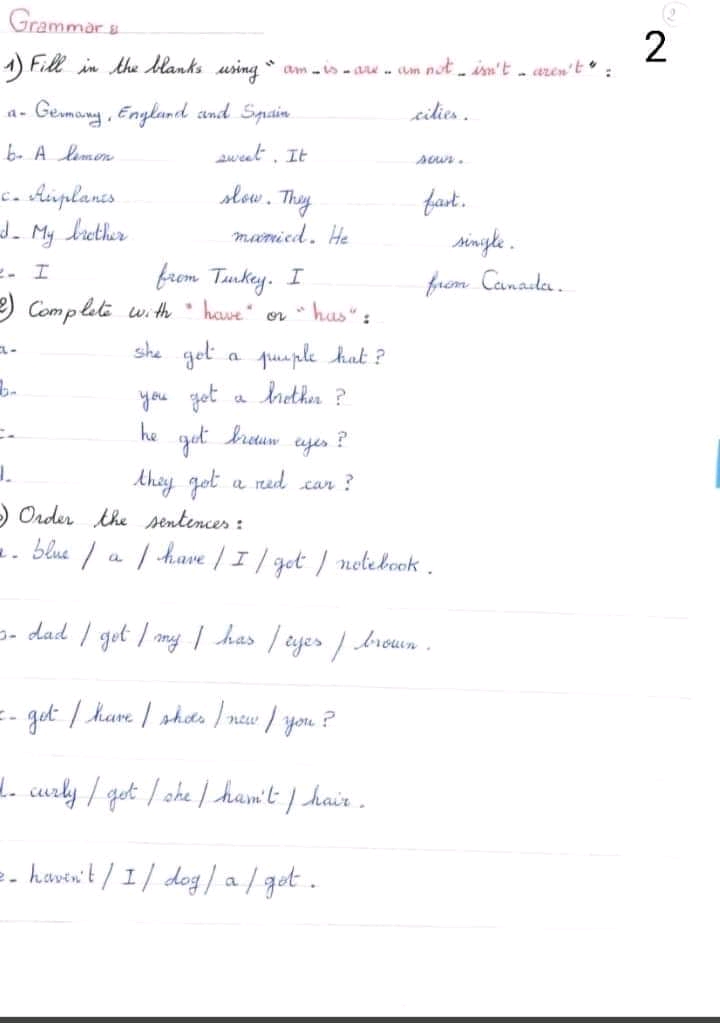 2
2
Grammar :
1) Fill in the blanks using " am - is - are - am not - isn't - aren't " :
a- Germany, England and Spain cities.
b- A lemon sweet. It sour.
c- Airplanes slow. They fast.
d- My brother married. He single.
e- I from Turkey. I from Canada.
2) Complete with "have" or "has" :
a- she got a purple hat ?
b- you got a brother ?
c- he got brown eyes ?
d- they got a red car ?
) Order the sentences :
a- blue / a / have / I / got / notebook .
b- dad / got / my / has / eyes / brown .
c- got / have / shoes / new / you ?
d- curly / got / she / hasn't / hair .
e- haven't / I / dog / a / got .